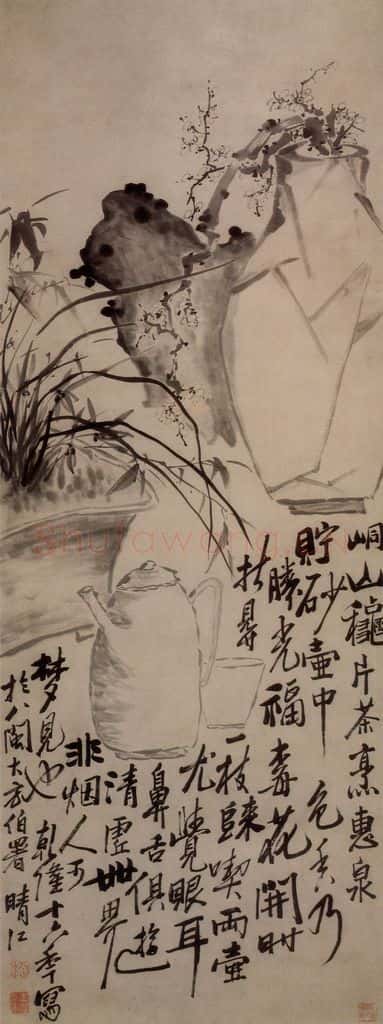 峒山龝片茶烹惠泉
貯砂壺中色香乃
勝光福梅花開時
折得
一枝歸喫兩壺
尤覺眼耳
鼻舌俱游
清虛世界
非烟人可
夢見也乾隆十六年寫
於八閩大方伯署晴江